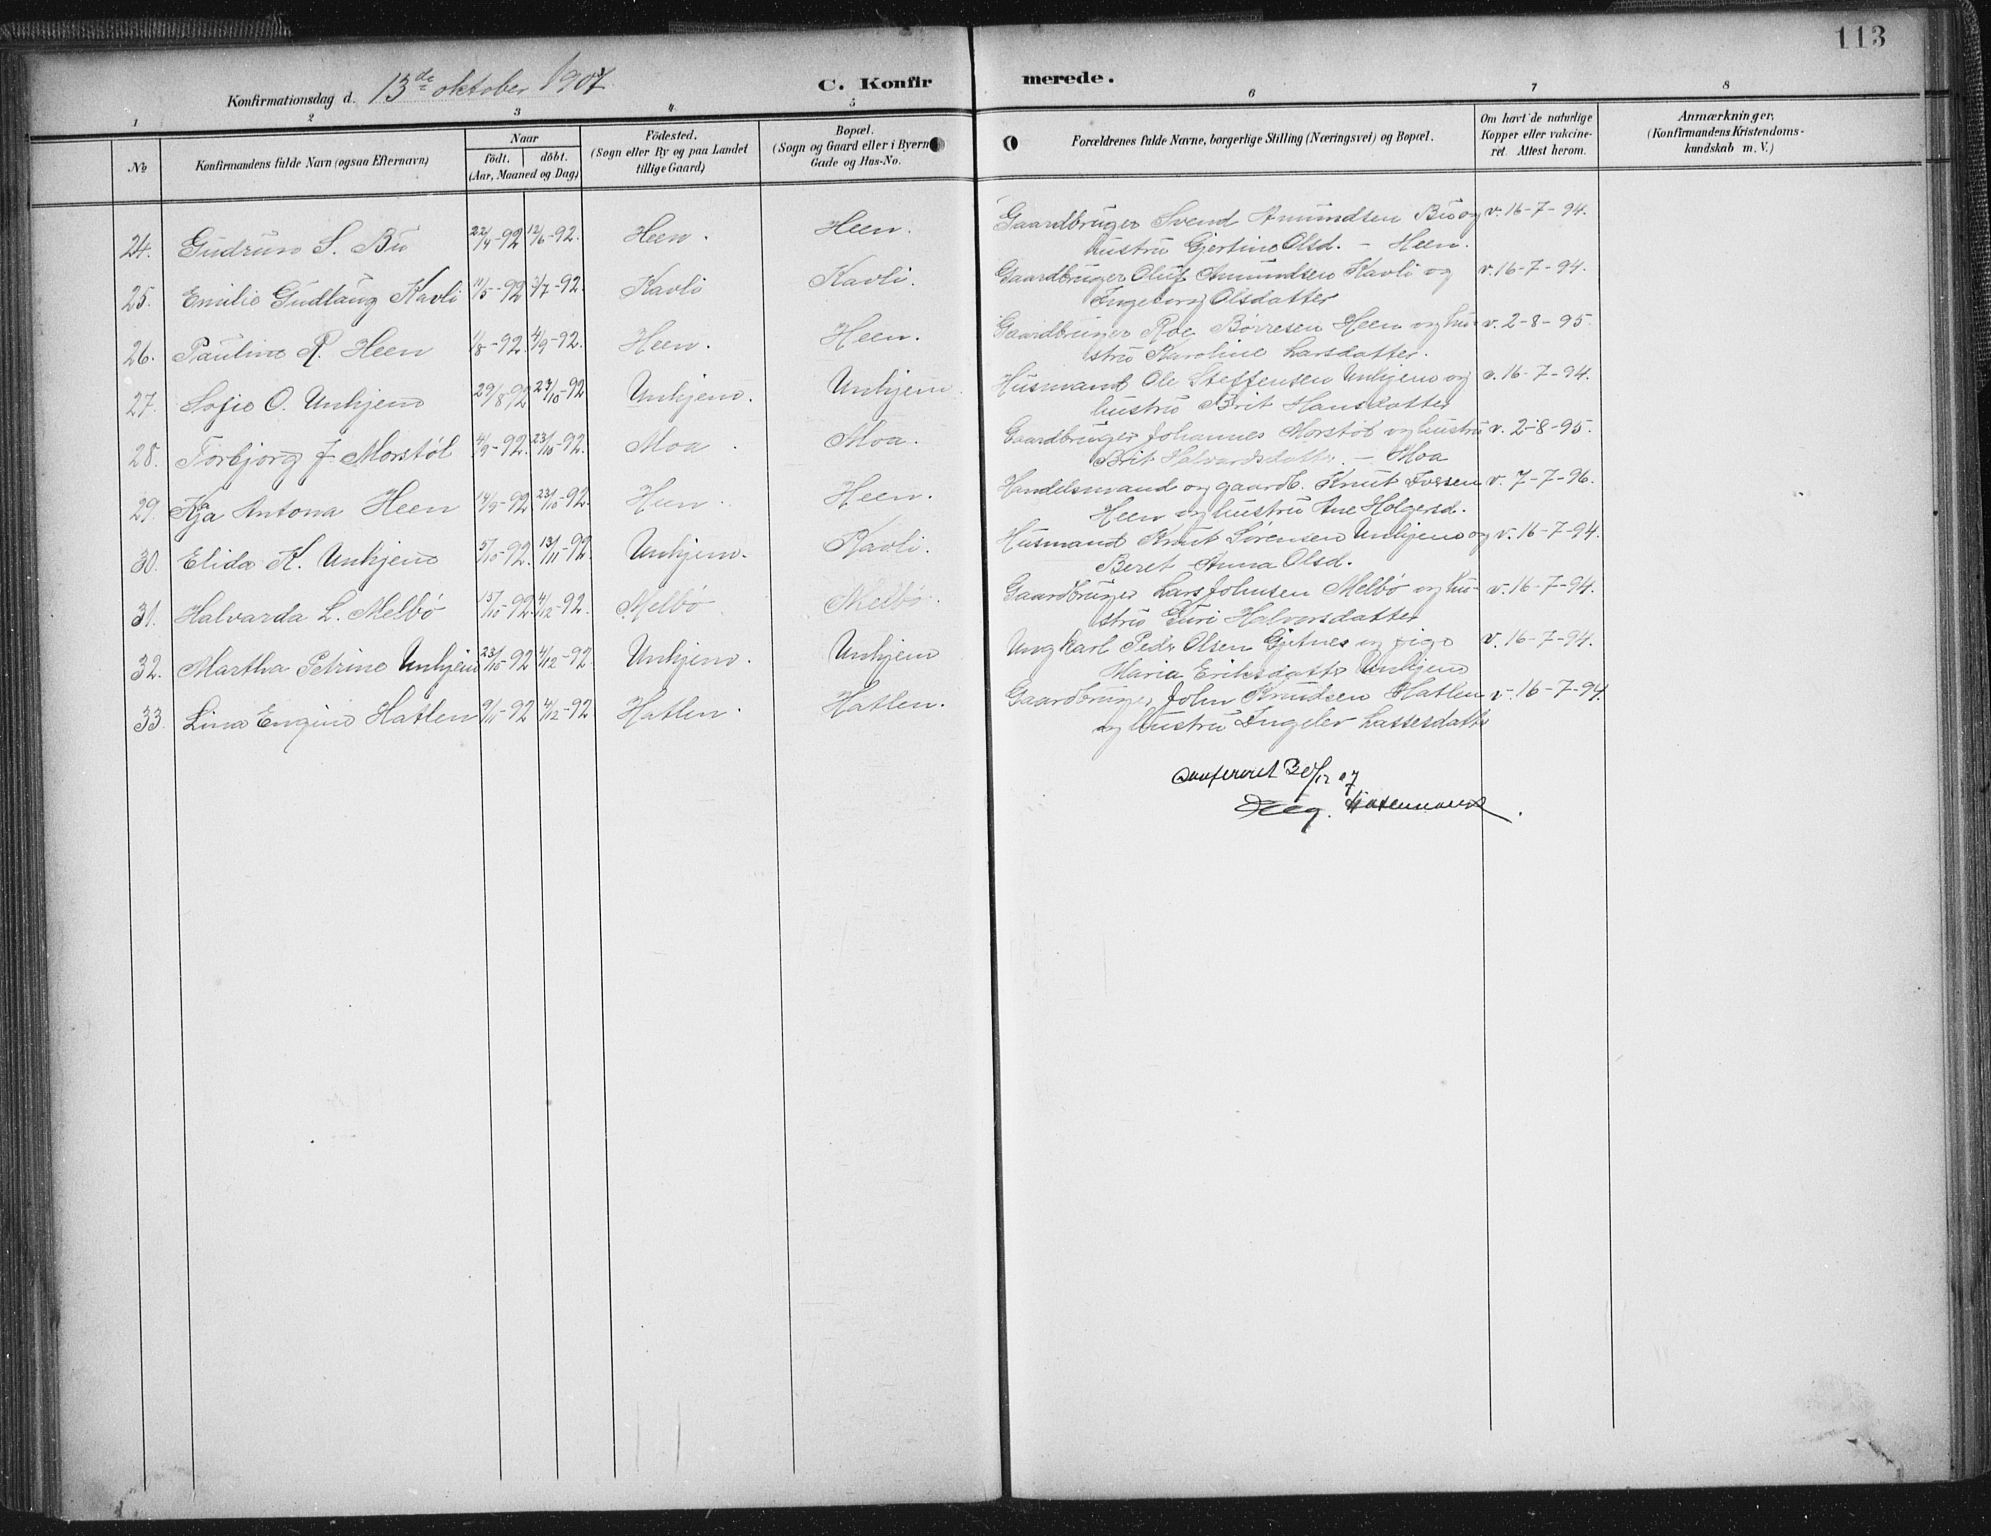 113
Konfirmationsdag d. 13de oktober 1907
C. Konfirmerede.
1 2 3 4 5 6 7 8
No
Konfirmandens fulde Navn (ogsaa Efternavn)
Naar
födt. döbt.
(Aar, Maaned og Dag)
Födested.
(Sogn eller By og paa Landet
tillige Gaard)
Bopæl.
(Sogn og Gaard eller i Byern
Gade og Hus-No.
Forældrenes fulde Navne, borgerlige Stilling (Næringsvei) og Bopæl.
Om havt de naturlige
Kopper eller vakcine-
ret. Attest herom.
Anmærkninger,
(Konfirmandens Kristendoms-
kundskab m. V.)
24. Gudrun S. Bu 22/4-92 12/6-92. Heen. Heen. Gaardbruger Svend Amundsen Bu og v. 16-7-94.
hustru Gjertine Olsd. - Heen.
25. Emilie Gudlaug Kavli 11/5-92 3/7-92. Kavli Kavli. Gaardbruger Oluf Amundsen Kavli og v. 16-7-94.
Ingeborg Olsdatter
26. Pauline R. Heen 1/8-92. 4/9-92. Heen. Heen. Gaardbruger Roe Børresen Heen og hu- v. 2-8-95.
stru Karoline Larsdatter.
27. Sofie O. Unhjem 29/8 92 23/10-92 Unhjem. Unhjem. Husmand Ole Steffensen Unhjem og v. 16-7-94.
hustru Brit Hansdatter
28. Torbjørg J Morstøl 4/9-92. 23/10-92. Moa. Moa. Gaardbruger Johannes Morstøl og hustru v. 2-8-95.
Brit Halvardsdatter. - Moa
29. Kaja Antona Heen 14/9-92 23/10-92. Heen. Heen. Handelsmand og gaardb. Knut Iversen v. 7-7-96.
Heen og hustru Ane Holgersd.
30. Elida K. Unhjem 5/10-92. 13/11-92. Unhjem. Kavli. Husmand Knut Sørensen Unhjem og v. 16-7-94.
Beret Anna Olsd.
31. Halvarda L. Melbø 15/10-92. 4/12-92. Melbø Melbø. Gaardbruger Lars Johnsen Melbø og hu- v. 16-7-94.
stru Guri Halvorsdatter
32. Martha Petrine Unhjem 23/10-92 4/12-92. Unhjem. Unhjem Ungkarl Peder Olsen Gjetnes og pige v. 16-7-94.
Maria Eriksdatter Unhjem
33. Lina Engine Hatlen 9/11-92 4/12-92 Hatlen. Hatlen. Gaardbruger John Knudsen Hatlen v. 16-7-94
og hustru Ingelev Lassesdatter
Konfereret 30/12 07